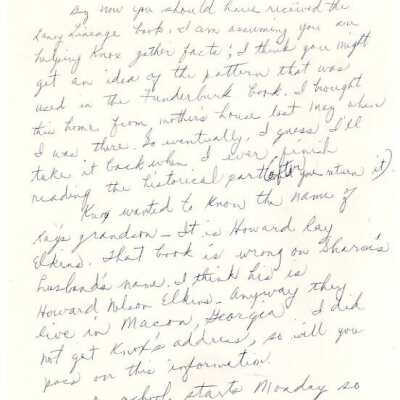 By now you should have received the
Laney Lineage book. I am assuming you are
helping Knox gather facts; I think you might
get an idea of the pattern that was
used in the Funderburk book. I brought
this home from mother's house last May when
I was there. So eventually, I guess I'll
take it back when I ever finish
reading the historical part (after you return it).
Knox wanted to know the name of
Ray's grandson - It is Howard Ray
Elkins. That book is wrong on Sharon's
husband's name. I think his is
Howard Nelson Elkins. Anyway they
live in Macon, Georgia. I did
not get Knox's address, so will you
pass on this information.
school starts Monday so